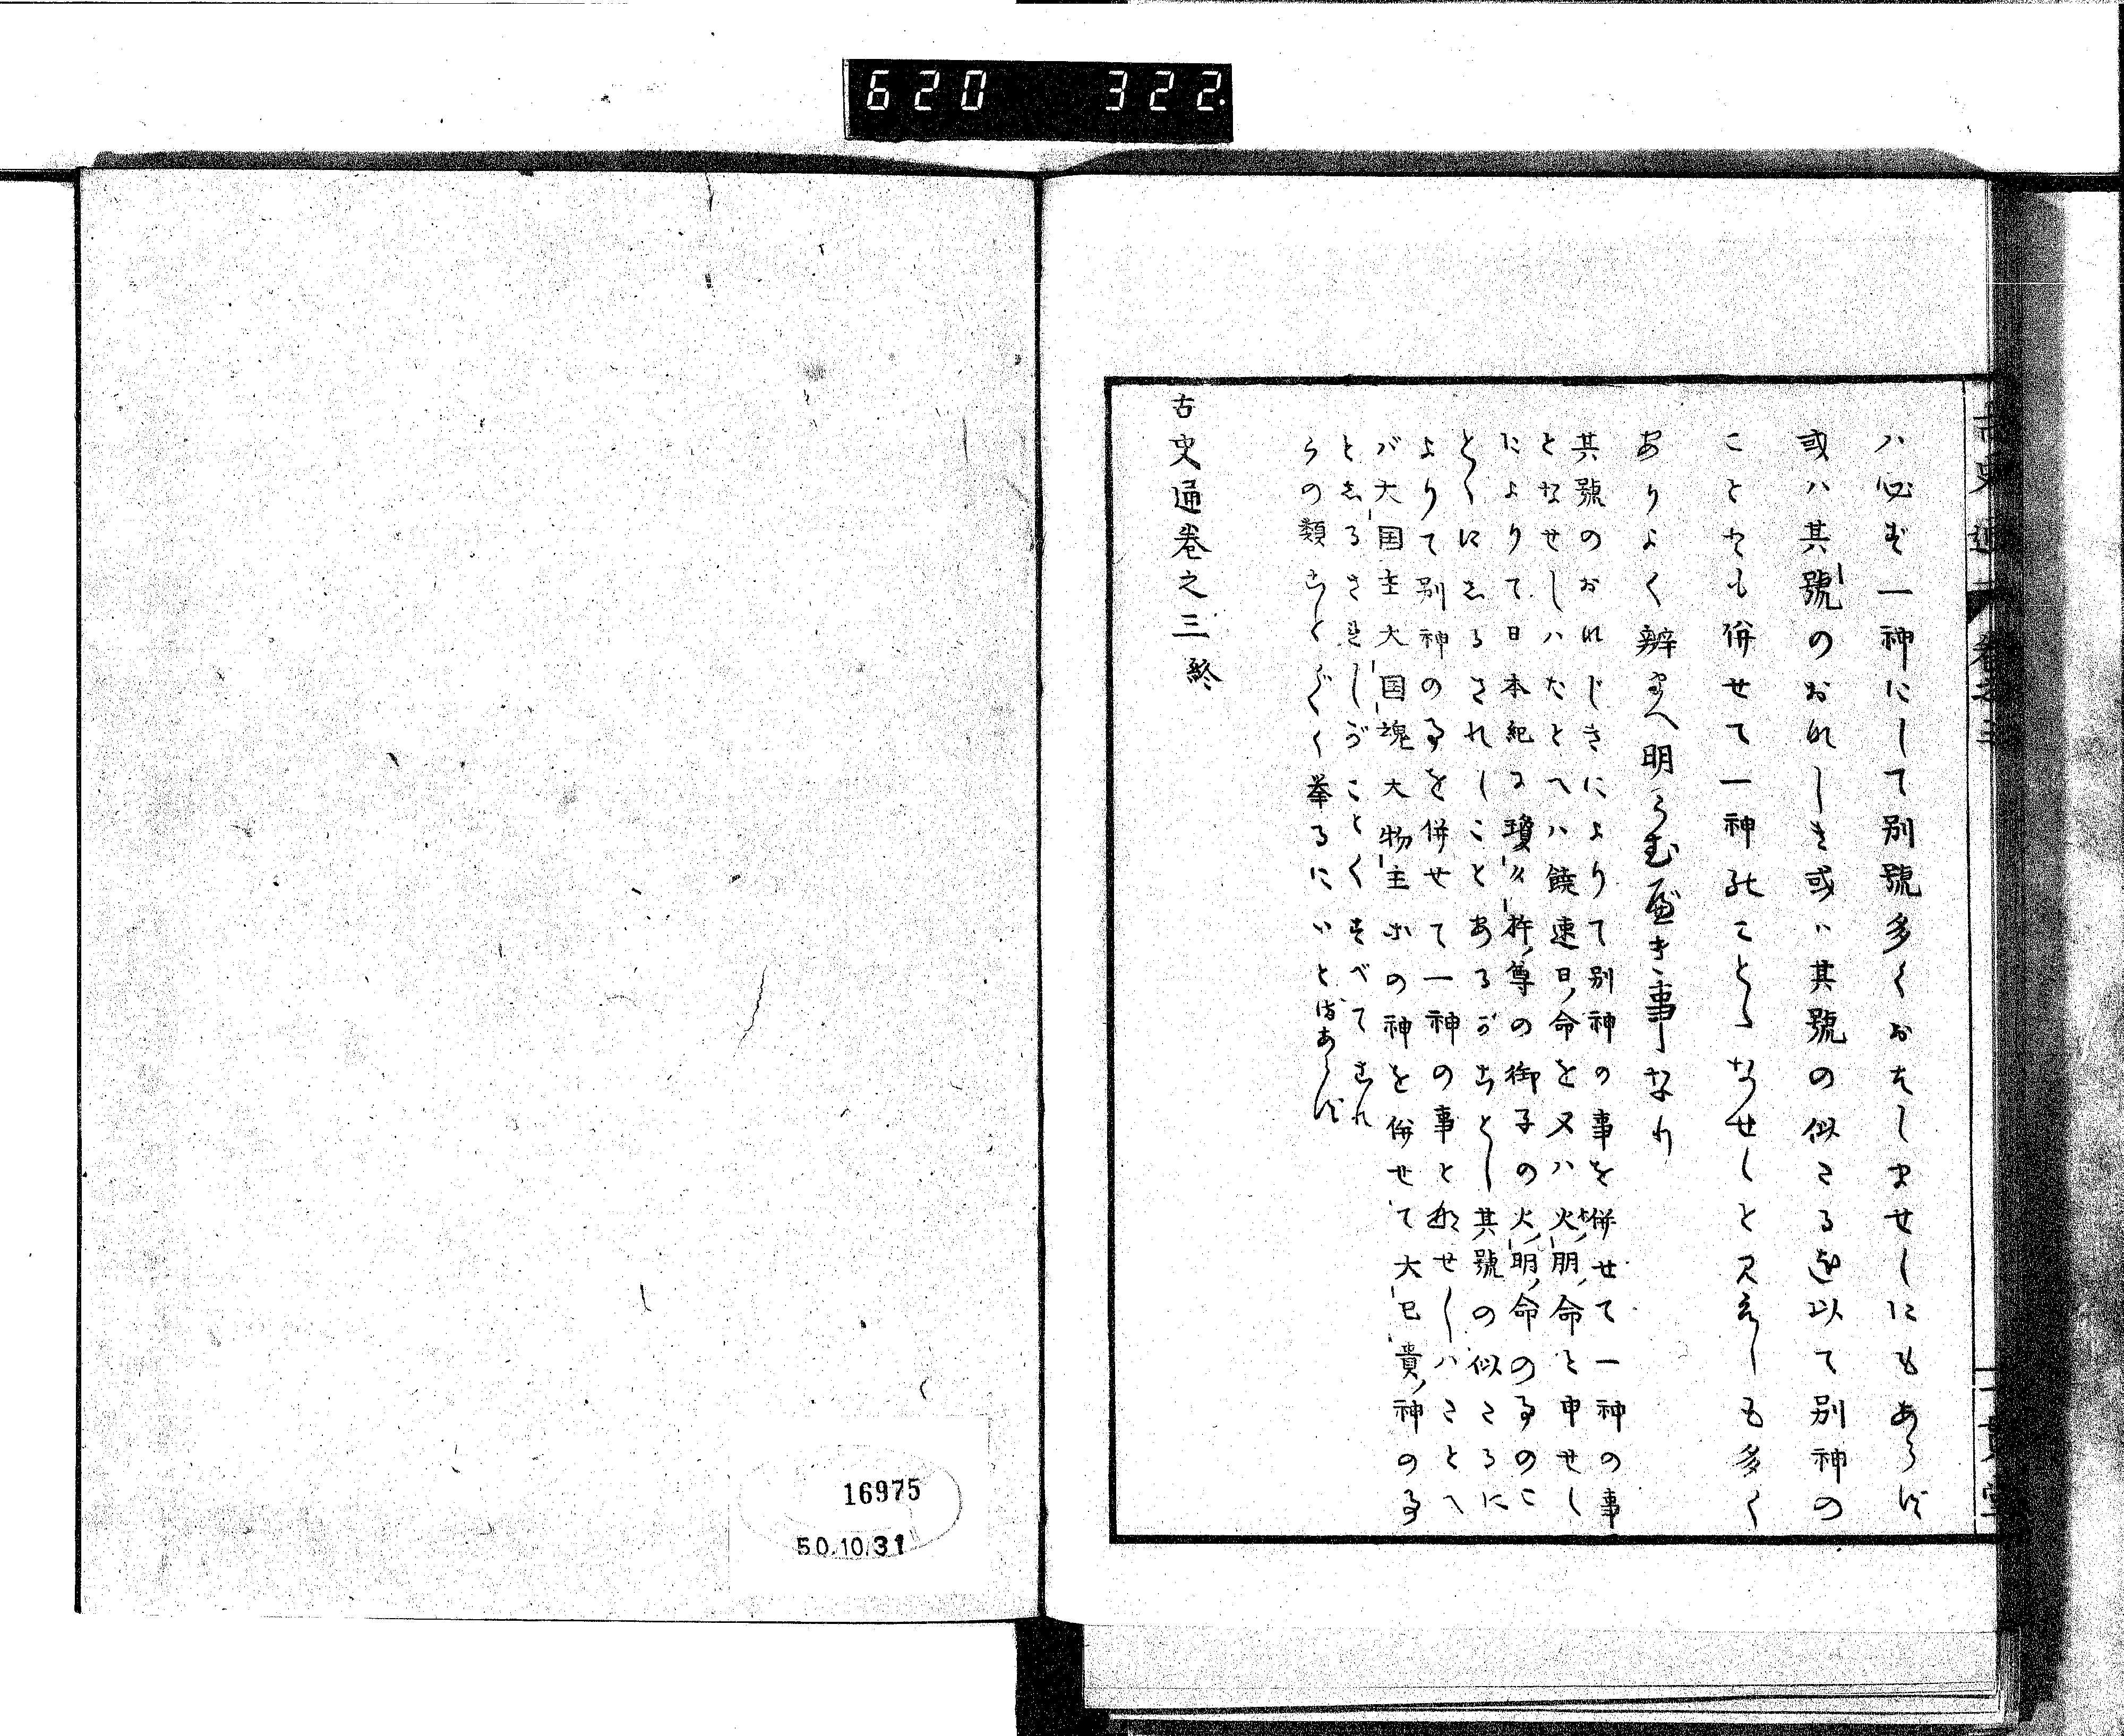 620 322
ハ必ず一神にして別號多くおはしませしにもあらず
或ハ其號のおなしき或ハ其號の似たるを以て別神の
ことをも併せて一神のことゝなせしと見えしも多く
ありよく辨まへ明らむべき事なり
其號のおなじきによりて別神の事を併せて一神の事
となせしハたとへハ饒速日命を又ハ火明命と申せし
によりて日本紀に瓊々杵尊の御子の火明命の事のこ
とくにしるされしことあるがことし其號の似たるに
よりて別神の事を併せて一神の事となせしハたとへ
バ大国主大国魂大物主等の神を併せて大已貴神の事
としるされしがことくすべてこれ
らの類ことごとく挙るにいとまあらず
古史通卷之三終
古史通 卷之三
16975
50.10.31